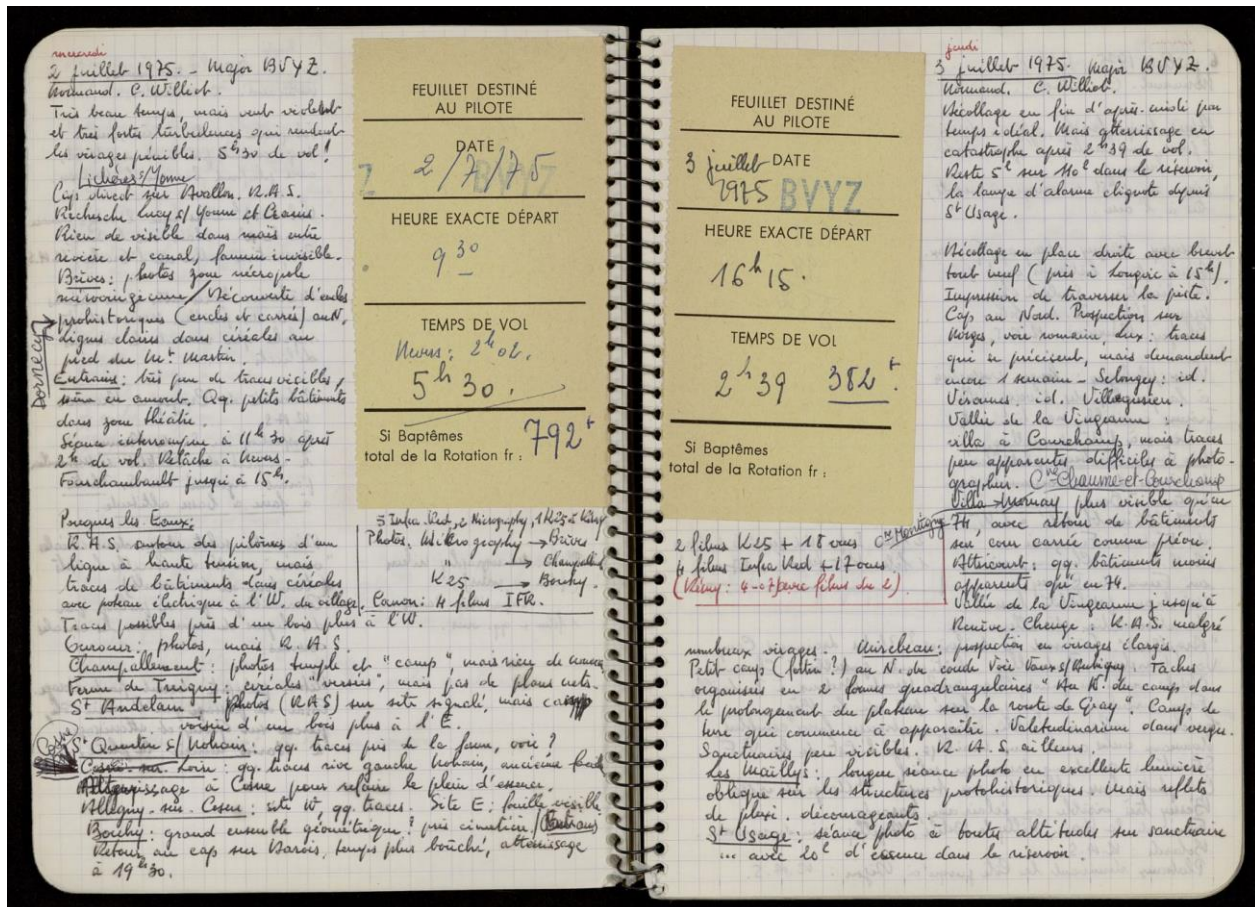 mercredi
2 juillet 1975. - Major BVYZ.
Normand. C. Williot.
Très beau temps, mais vent violent
et très fortes turbulences qui rendent
les virages pénibles. 5h30 de vol !
Lichères s/Yonne
Cap direct sur Avallon. R.A.S.
Recherche Lucy s/ Yonne et Crain.
Rien de visible dans maïs entre
rivière et canal, fanum invisible.
Brèves : photos zone nécropole
mérovingienne / Découverte d'enclos
protohistoriques (cercles et carrés) au N.
Dornecy
lignes claires dans céréales au
pied du Mt Martin.
Entrains : très peu de traces visibles,
même en amont. Qq. petits bâtiments
dans zone théâtre.
Séance interrompue à 11h30 après
2h de vol. Relâche à Nevers-
Fourchambault jusqu'à 15h.
Pougues les Eaux :
R.A.S. autour des pylônes d'une
ligne à haute tension, mais
traces de bâtiments dans céréales
avec poteau électrique à l'W. du village.
Traces possibles près d'un bois plus à l'W.
5 Infra Red, 2 Micrography, 1 K25 à Rémy
Photos. Micrography → Brèves
" → Champallement
K25 → Bouhy.
Canon : 4 films IFR.
photos, mais R.A.S.
Champallement : photos temple et "camp", mais rien de nouveau
Ferme de Truigny : céréales "versées", mais pas de plans nets.
St Andelain Photos (RAS) sur site signalé, mais
voisin d'un bois plus à l'E.
St Quentin s/ Nohain : qq. traces près de la ferme, voie ?
Cosne-sur-Loire : qq. traces rive gauche Nohain, ancienne
Atterrissage à Cosne pour refaire le plein d'essence.
Alligny-sur-Cosne : site W, qq. traces. Site E : fouille visible
Bouhy : grand ensemble géométrique ? près cimetière / Entrains
Retour au cap sur Darois, temps plus bouché, atterrissage
à 19h30.
FEUILLET DESTINÉ
AU PILOTE
DATE
2/7/75
HEURE EXACTE DÉPART
9 30
TEMPS DE VOL
Nevers : 2h02.
5h30.
Si Baptêmes
total de la Rotation fr :
792 t
FEUILLET DESTINÉ
AU PILOTE
DATE
3 juillet
1975
BVYZ
HEURE EXACTE DÉPART
16h15.
TEMPS DE VOL
2h39 382 t.
Si Baptêmes
total de la Rotation fr :
jeudi
3 juillet 1975. Major BVYZ.
Normand. C. Williot.
Décollage en fin d'après-midi par
temps idéal. Mais atterrissage en
catastrophe après 2h39 de vol.
Reste 5l sur 110l dans le réservoir,
la lampe d'alarme clignote depuis
St Usage.
Décollage en place droite avec brevet
tout neuf (pris à Longvic à 15h).
Impression de traverser la piste.
Cap au Nord. Prospection sur
Norges, voie romaine, Lux : traces
qui se précisent, mais demandent
encore 1 semaine - Selongey : id.
Véronnes. id. Villegusien.
Vallée de la Vingeanne :
villa à Courchamp, mais traces
peu apparentes difficiles à photo-
graphier. Cne Chaume-et-Courchamp
Villa Mornay plus visible qu'en
74, avec retour de bâtiments
sur cour carrée comme prévu.
Cne Montigny
Attricourt : qq. bâtiments moins
apparents qu'en 74.
Vallée de la Vingeanne jusqu'à
Renève. Cheuge : R.A.S. malgré
2 films K25 + 18 vues
4 films Infra Red + 17 vues.
(Rémy : 4-07 avec films du 2)
nombreux virages. Mirebeau : prospection en virages élargis.
Petit camp (fortin ?) au N. du coude Voie Vaux s/Aubigny Taches
organisées en 2 formes quadrangulaires " Au N. du camp dans
le prolongement du plateau sur la route de Gray ". Camp de
terre qui commence à apparaître. Valetudinarium dans verger.
Sanctuaires peu visibles. R.A.S. ailleurs.
Les Maillys : longue séance photo en excellente lumière
oblique sur les structures protohistoriques. Mais reflets
de plexi. décourageants.
St Usage : séance photo à toutes altitudes sur sanctuaire
... avec 20l d'essence dans le réservoir.